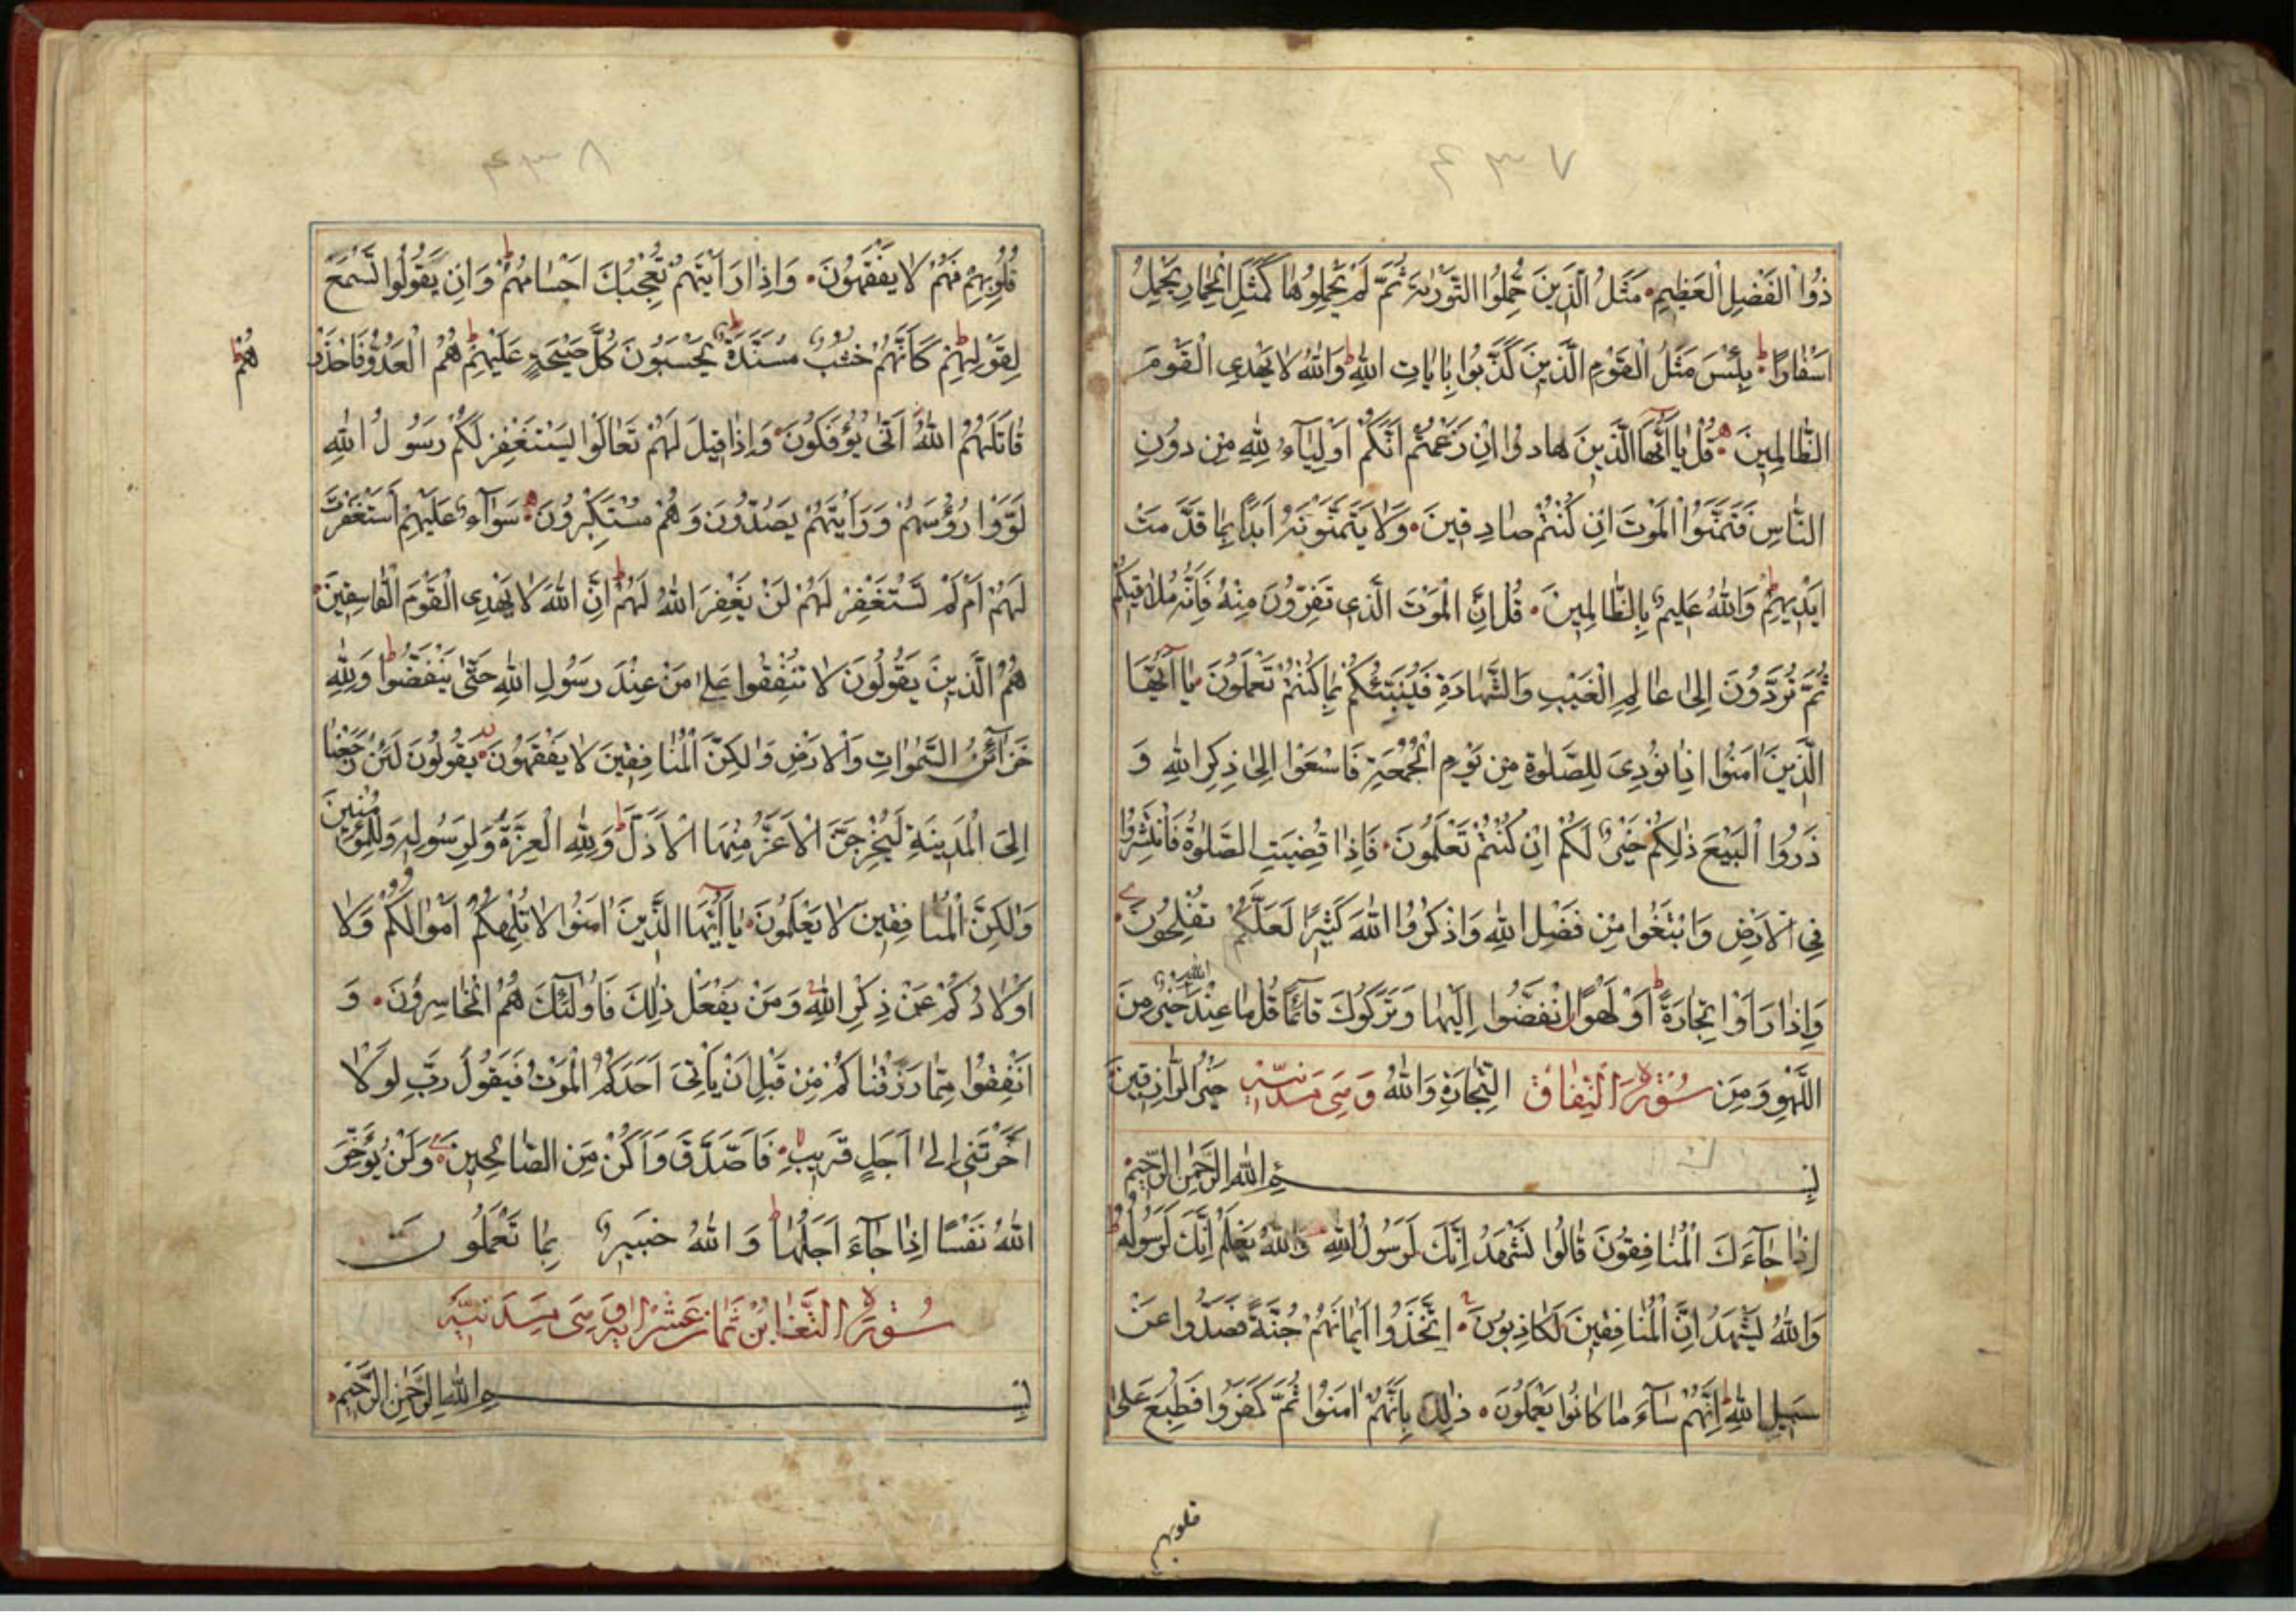 ۴۳۷
ذُوا الْفَضْلِ الْعَظِيمِ مَثَلُ الَّذِينَ حُمِّلُوا التَّوْرٰيةَ ثُمَّ لَمْ يَحْمِلُوهَا كَمَثَلِ الْحِمَارِ يَحْمِلُ
اَسْفَارًا ط بِئْسَ مَثَلُ الْقَوْمِ الَّذِينَ كَذَّبُوا بِاٰيَاتِ اللّٰهِ ط وَاللّٰهُ لَا يَهْدِي الْقَوْمَ
الظَّالِمِينَ قُلْ يَا اَيُّهَا الَّذِينَ هَادُوا اِنْ زَعَمْتُمْ اَنَّكُمْ اَوْلِيَآءُ لِلّٰهِ مِنْ دُونِ
النَّاسِ فَتَمَنَّوُا الْمَوْتَ اِنْ كُنْتُمْ صَادِقِينَ وَلَا يَتَمَنَّوْنَهُ اَبَدًا بِمَا قَدَّمَتْ
اَيْدِيهِمْ ط وَاللّٰهُ عَلِيمٌ بِالظَّالِمِينَ قُلْ اِنَّ الْمَوْتَ الَّذِي تَفِرُّونَ مِنْهُ فَاِنَّهُ مُلَاقِيكُمْ
ثُمَّ تُرَدُّونَ اِلَى عَالِمِ الْغَيْبِ وَالشَّهَادَةِ فَيُنَبِّئُكُمْ بِمَا كُنْتُمْ تَعْمَلُونَ يَا اَيُّهَا
الَّذِينَ اٰمَنُوا اِذَا نُودِيَ لِلصَّلٰوةِ مِنْ يَوْمِ الْجُمُعَةِ فَاسْعَوْا اِلَى ذِكْرِ اللّٰهِ وَ
ذَرُوا الْبَيْعَ ذٰلِكُمْ خَيْرٌ لَكُمْ اِنْ كُنْتُمْ تَعْلَمُونَ فَاِذَا قُضِيَتِ الصَّلٰوةُ فَانْتَشِرُوا
فِي الْاَرْضِ وَابْتَغُوا مِنْ فَضْلِ اللّٰهِ وَاذْكُرُوا اللّٰهَ كَثِيرًا لَعَلَّكُمْ تُفْلِحُونَ
وَاِذَا رَاَوْا تِجَارَةً اَوْ لَهْوًا انْفَضُّوا اِلَيْهَا وَتَرَكُوكَ قَآئِمًا قُلْ مَا عِنْدَ اللّٰهِ خَيْرٌ مِنَ
اللَّهْوِ وَمِنَ سُورَةُ النِّفَاقِ التِّجَارَةِ وَاللّٰهُ وَهِيَ مَدَنِيَّة خَيْرُ الرَّازِقِينَ
بِسْمِ اللّٰهِ الرَّحْمٰنِ الرَّحِيمِ
اِذَا جَآءَكَ الْمُنَافِقُونَ قَالُوا نَشْهَدُ اِنَّكَ لَرَسُولُ اللّٰهِ وَاللّٰهُ يَعْلَمُ اِنَّكَ لَرَسُولُهُ ط
وَاللّٰهُ يَشْهَدُ اِنَّ الْمُنَافِقِينَ لَكَاذِبُونَ اِتَّخَذُوا اَيْمَانَهُمْ جُنَّةً فَصَدُّوا عَنْ
سَبِيلِ اللّٰهِ ط اِنَّهُمْ سَآءَ مَا كَانُوا يَعْمَلُونَ ذٰلِكَ بِاَنَّهُمْ اٰمَنُوا ثُمَّ كَفَرُوا فَطُبِعَ عَلَى
قلوبهم
۴۳۸
قُلُوبِهِمْ فَهُمْ لَا يَفْقَهُونَ وَاِذَا رَاَيْتَهُمْ تُعْجِبُكَ اَجْسَامُهُمْ ط وَاِنْ يَقُولُوا تَسْمَعْ
لِقَوْلِهِمْ ط كَاَنَّهُمْ خُشُبٌ مُسَنَّدَةٌ ط يَحْسَبُونَ كُلَّ صَيْحَةٍ عَلَيْهِمْ ط هُمُ الْعَدُوُّ فَاحْذَرْ
هُمْ ط
قَاتَلَهُمُ اللّٰهُ اَنّٰى يُؤْفَكُونَ وَاِذَا قِيلَ لَهُمْ تَعَالَوْا يَسْتَغْفِرْ لَكُمْ رَسُولُ اللّٰهِ
لَوَّوْا رُؤُسَهُمْ وَرَاَيْتَهُمْ يَصُدُّونَ وَهُمْ مُسْتَكْبِرُونَ سَوَآءٌ عَلَيْهِمْ اَسْتَغْفَرْتَ
لَهُمْ اَمْ لَمْ تَسْتَغْفِرْ لَهُمْ لَنْ يَغْفِرَ اللّٰهُ لَهُمْ ط اِنَّ اللّٰهَ لَا يَهْدِي الْقَوْمَ الْفَاسِقِينَ
هُمُ الَّذِينَ يَقُولُونَ لَا تُنْفِقُوا عَلَى مَنْ عِنْدَ رَسُولِ اللّٰهِ حَتّٰى يَنْفَضُّوا ط وَلِلّٰهِ
خَزَآئِنُ السَّمٰوَاتِ وَالْاَرْضِ وَلٰكِنَّ الْمُنَافِقِينَ لَا يَفْقَهُونَ يَقُولُونَ لَئِنْ رَجَعْنَا
اِلَى الْمَدِينَةِ لَيُخْرِجَنَّ الْاَعَزُّ مِنْهَا الْاَذَلَّ ط وَلِلّٰهِ الْعِزَّةُ وَلِرَسُولِهِ وَلِلْمُؤْمِنِينَ
وَلٰكِنَّ الْمُنَافِقِينَ لَا يَعْلَمُونَ يَا اَيُّهَا الَّذِينَ اٰمَنُوا لَا تُلْهِكُمْ اَمْوَالُكُمْ وَلَا
اَوْلَادُكُمْ عَنْ ذِكْرِ اللّٰهِ وَمَنْ يَفْعَلْ ذٰلِكَ فَاُولٰٓئِكَ هُمُ الْخَاسِرُونَ وَ
اَنْفِقُوا مِمَّا رَزَقْنَاكُمْ مِنْ قَبْلِ اَنْ يَاْتِيَ اَحَدَكُمُ الْمَوْتُ فَيَقُولَ رَبِّ لَوْلَا
اَخَّرْتَنِي اِلَى اَجَلٍ قَرِيبٍ فَاَصَّدَّقَ وَاَكُنْ مِنَ الصَّالِحِينَ وَلَنْ يُؤَخِّرَ
اللّٰهُ نَفْسًا اِذَا جَآءَ اَجَلُهَا ط وَاللّٰهُ خَبِيرٌ بِمَا تَعْمَلُونَ
سُورَةُ التَّغَابُنْ ثَمَانِ عَشْرَ اٰيَة وَهِيَ مَدَنِيَّة
بِسْمِ اللّٰهِ الرَّحْمٰنِ الرَّحِيمِ